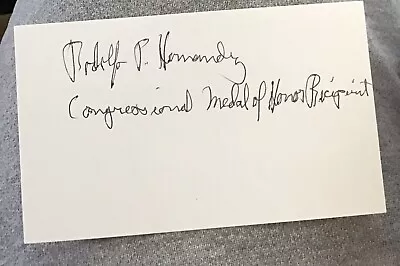 Rodolfo P. Hernandez
Congressional Medal of Honor Recipient